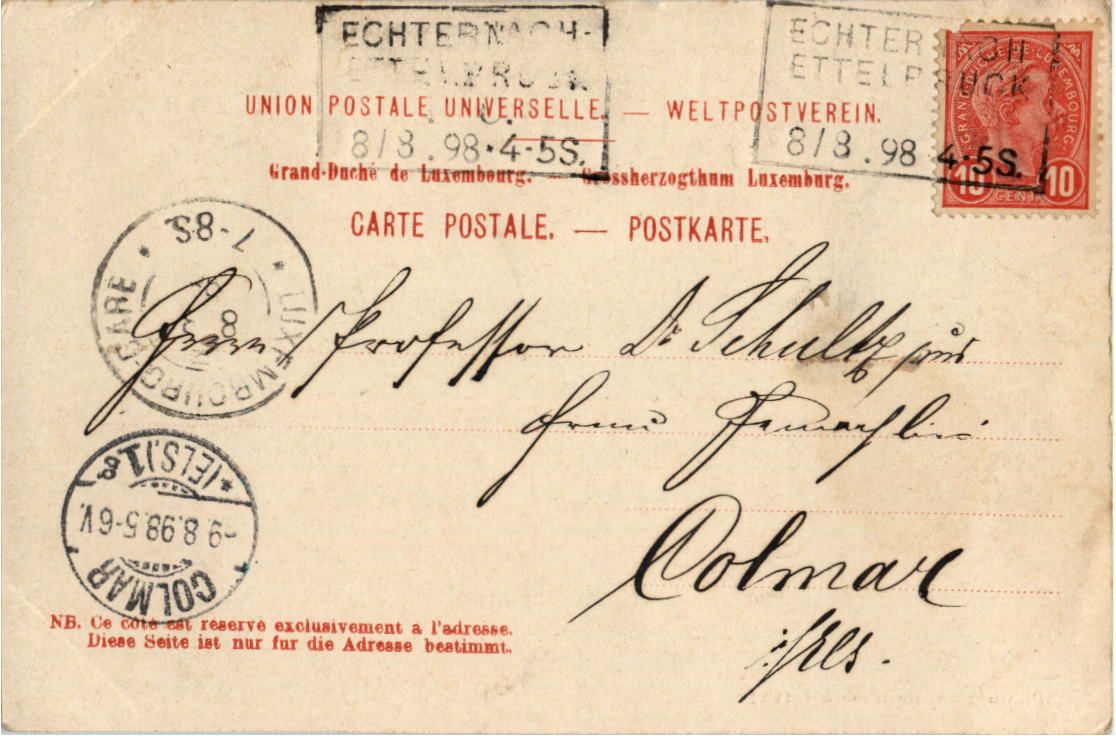 ECHTERNACH-
ETTELBRUCK
8/8.98·4-5S.
ECHTERNACH
ETTELBRUCK
8/8.98 4·5S.
GRAND DUCHÉ DE LUXEMBOURG
10 CENT. 10
UNION POSTALE UNIVERSELLE. — WELTPOSTVEREIN.
Grand-Duché de Luxembourg. — Grossherzogthum Luxemburg.
CARTE POSTALE. — POSTKARTE.
LUXEMBOURG-GARE
8
7-8S
Herrn Professor Dr Schultz und
Frau Gemahlin
Colmar
i/Els.
COLMAR
-9.8.98.5-6V.
*(ELS.)1
NB. Ce coté est réservé exclusivement a l'adresse.
Diese Seite ist nur fur die Adresse bestimmt.